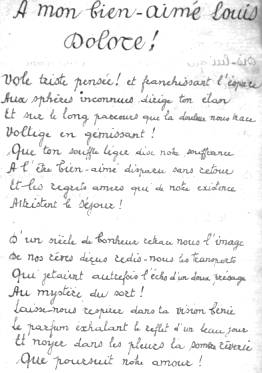 A mon bien-aimé Louis
Dolore!
Vole triste pensée! et franchissant l'espace
Aux sphères inconnues dirige ton élan
Et sur le long parcours que la douleur nous trace
Voltige en gémissant!
Que ton souffle léger dise notre souffrance
A l'être bien-aimé disparu sans retour
Et les regrets amers que de notre existence
Attristent le séjour!
D'un siècle de bonheur retrace nous l'image
De nos rêves déçus redis-nous les transports
Qui jetaient autrefois l'écho d'un doux présage
Au mystère du sort!
Laisse-nous respirer dans ta vision bénie
Le parfum exhalant le reflet d'un beau jour
Et noyer dans les pleurs la sombre rêverie
Que poursuit notre amour!